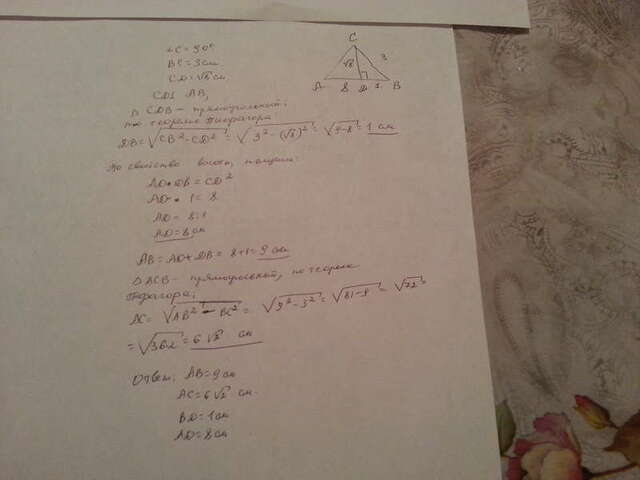 ∠C = 90°
BC = 3 см
CD = √8 см
CD⊥ AB,
C
√8
3
A 8 D 1 B
Δ CDB – прямоугольный;
по теореме Пифагора
DB = √CB² - CD² = √3² - (√8)² = √9-8 = 1 см
По свойству высоты, получим:
AD • DB = CD²
AD • 1 = 8
AD = 8:1
AD = 8 см
AB = AD + DB = 8+1 = 9 см
Δ ACB – прямоугольный, по теореме
Пифагора;
AC = √AB² - BC² = √9² - 3² = √81-9 = √72 =
= √36.2 = 6√2 см
Ответ: AB = 9 см
AC = 6√2 см
BD = 1 см
AD = 8 см